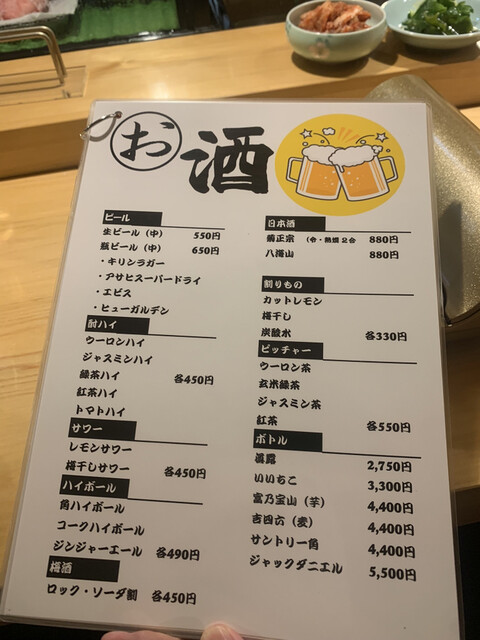 お酒
ビール
生ビール（中） 550円
瓶ビール（中） 650円
・キリンラガー
・アサヒスーパードライ
・エビス
・ヒューガルデン
酎ハイ
ウーロンハイ
ジャスミンハイ
緑茶ハイ 各450円
紅茶ハイ
トマトハイ
サワー
レモンサワー
梅干しサワー 各450円
ハイボール
角ハイボール
コークハイボール
ジンジャーエール 各490円
梅酒
ロック・ソーダ割 各450円
日本酒
菊正宗 （冷・熱燗 2合 880円
八海山 880円
割りもの
カットレモン
梅干し
炭酸水 各330円
ピッチャー
ウーロン茶
玄米緑茶
ジャスミン茶
紅茶 各550円
ボトル
眞露 2,750円
いいちこ 3,300円
富乃宝山（芋） 4,400円
吉四六（麦） 4,400円
サントリー角 4,400円
ジャックダニエル 5,500円